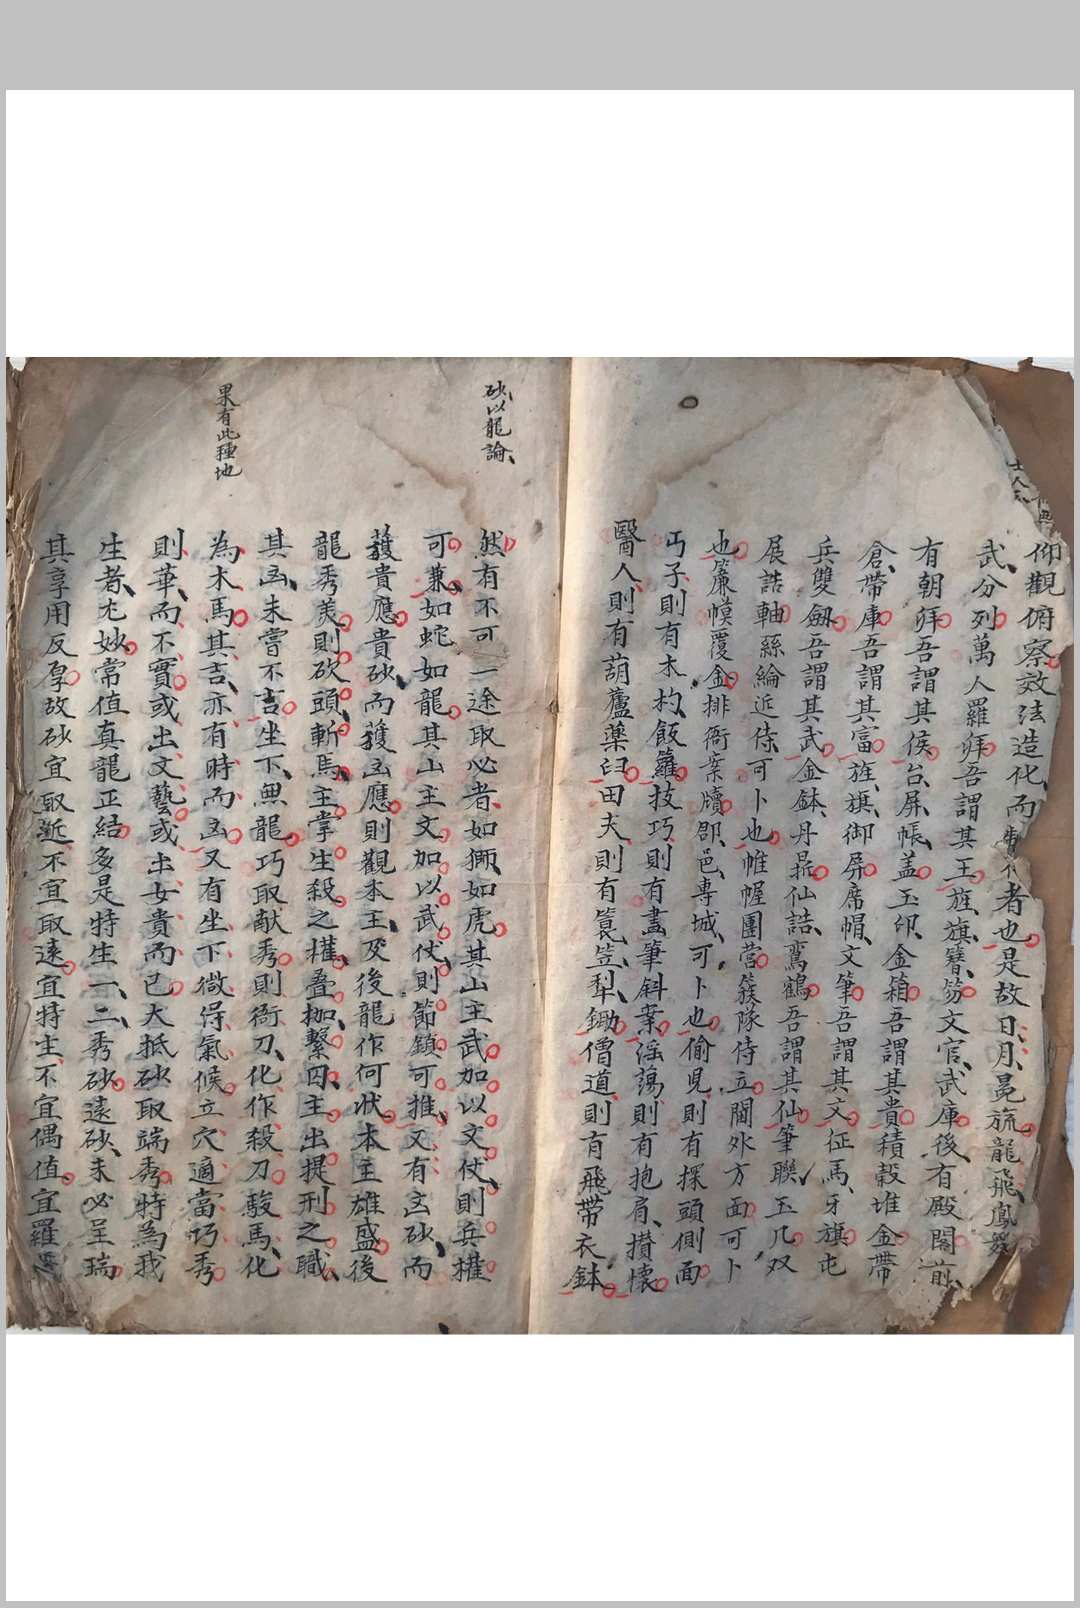 仰觀俯察效法造化而
者也是故日月冕旒龍飛鳳舞
武分列萬人羅拜吾謂其王旌旗簪笏文官武庫後有殿閣前
有朝拜吾謂其侯台屏帳盖玉印金箱吾謂其貴積穀堆金帶
倉帶庫吾謂其富旌旗御屏席帽文筆吾謂其文征馬牙旗屯
兵雙劔吾謂其武金鉢丹鼎仙誥鸞鶴吾謂其仙筆聯玉几双
展誥軸絲綸近侍可卜也帷幄團營簇隊侍立閫外方面可卜
也簾幙覆金排衙案牘郡邑專城可卜也偷児則有探頭側面
丐子則有木杓飯籮技巧則有畫筆斜業滛蕩則有抱肩攅懐
醫人則有葫蘆藥臼田夫則有簑笠犁鋤僧道則有飛帶衣鉢
砂以龍論
然有不可一途取必者如獅如虎其山主武加以文仗則兵權
可兼如蛇如龍其山主文加以武仗則節鎮可推又有凶砂而
獲貴應貴砂而獲凶應則觀本主及後龍作何狀本主雄盛後
龍秀美則砍頭斬馬主掌生殺之權疊枷繫囚主出提刑之職
其凶未嘗不吉坐下無龍巧取献秀則衙刀化作殺刀駿馬化
為木馬其吉亦有時而凶又有坐下微得氣候立穴適當巧秀
則華而不實或出文藝或出女貴而已大抵砂取端秀特為我
生者尤妙常值真龍正結多是特生一二秀砂遠砂未必呈瑞
其享用反厚故砂宜取近不宜取遠宜特生不宜偶值宜羅
果有此種地